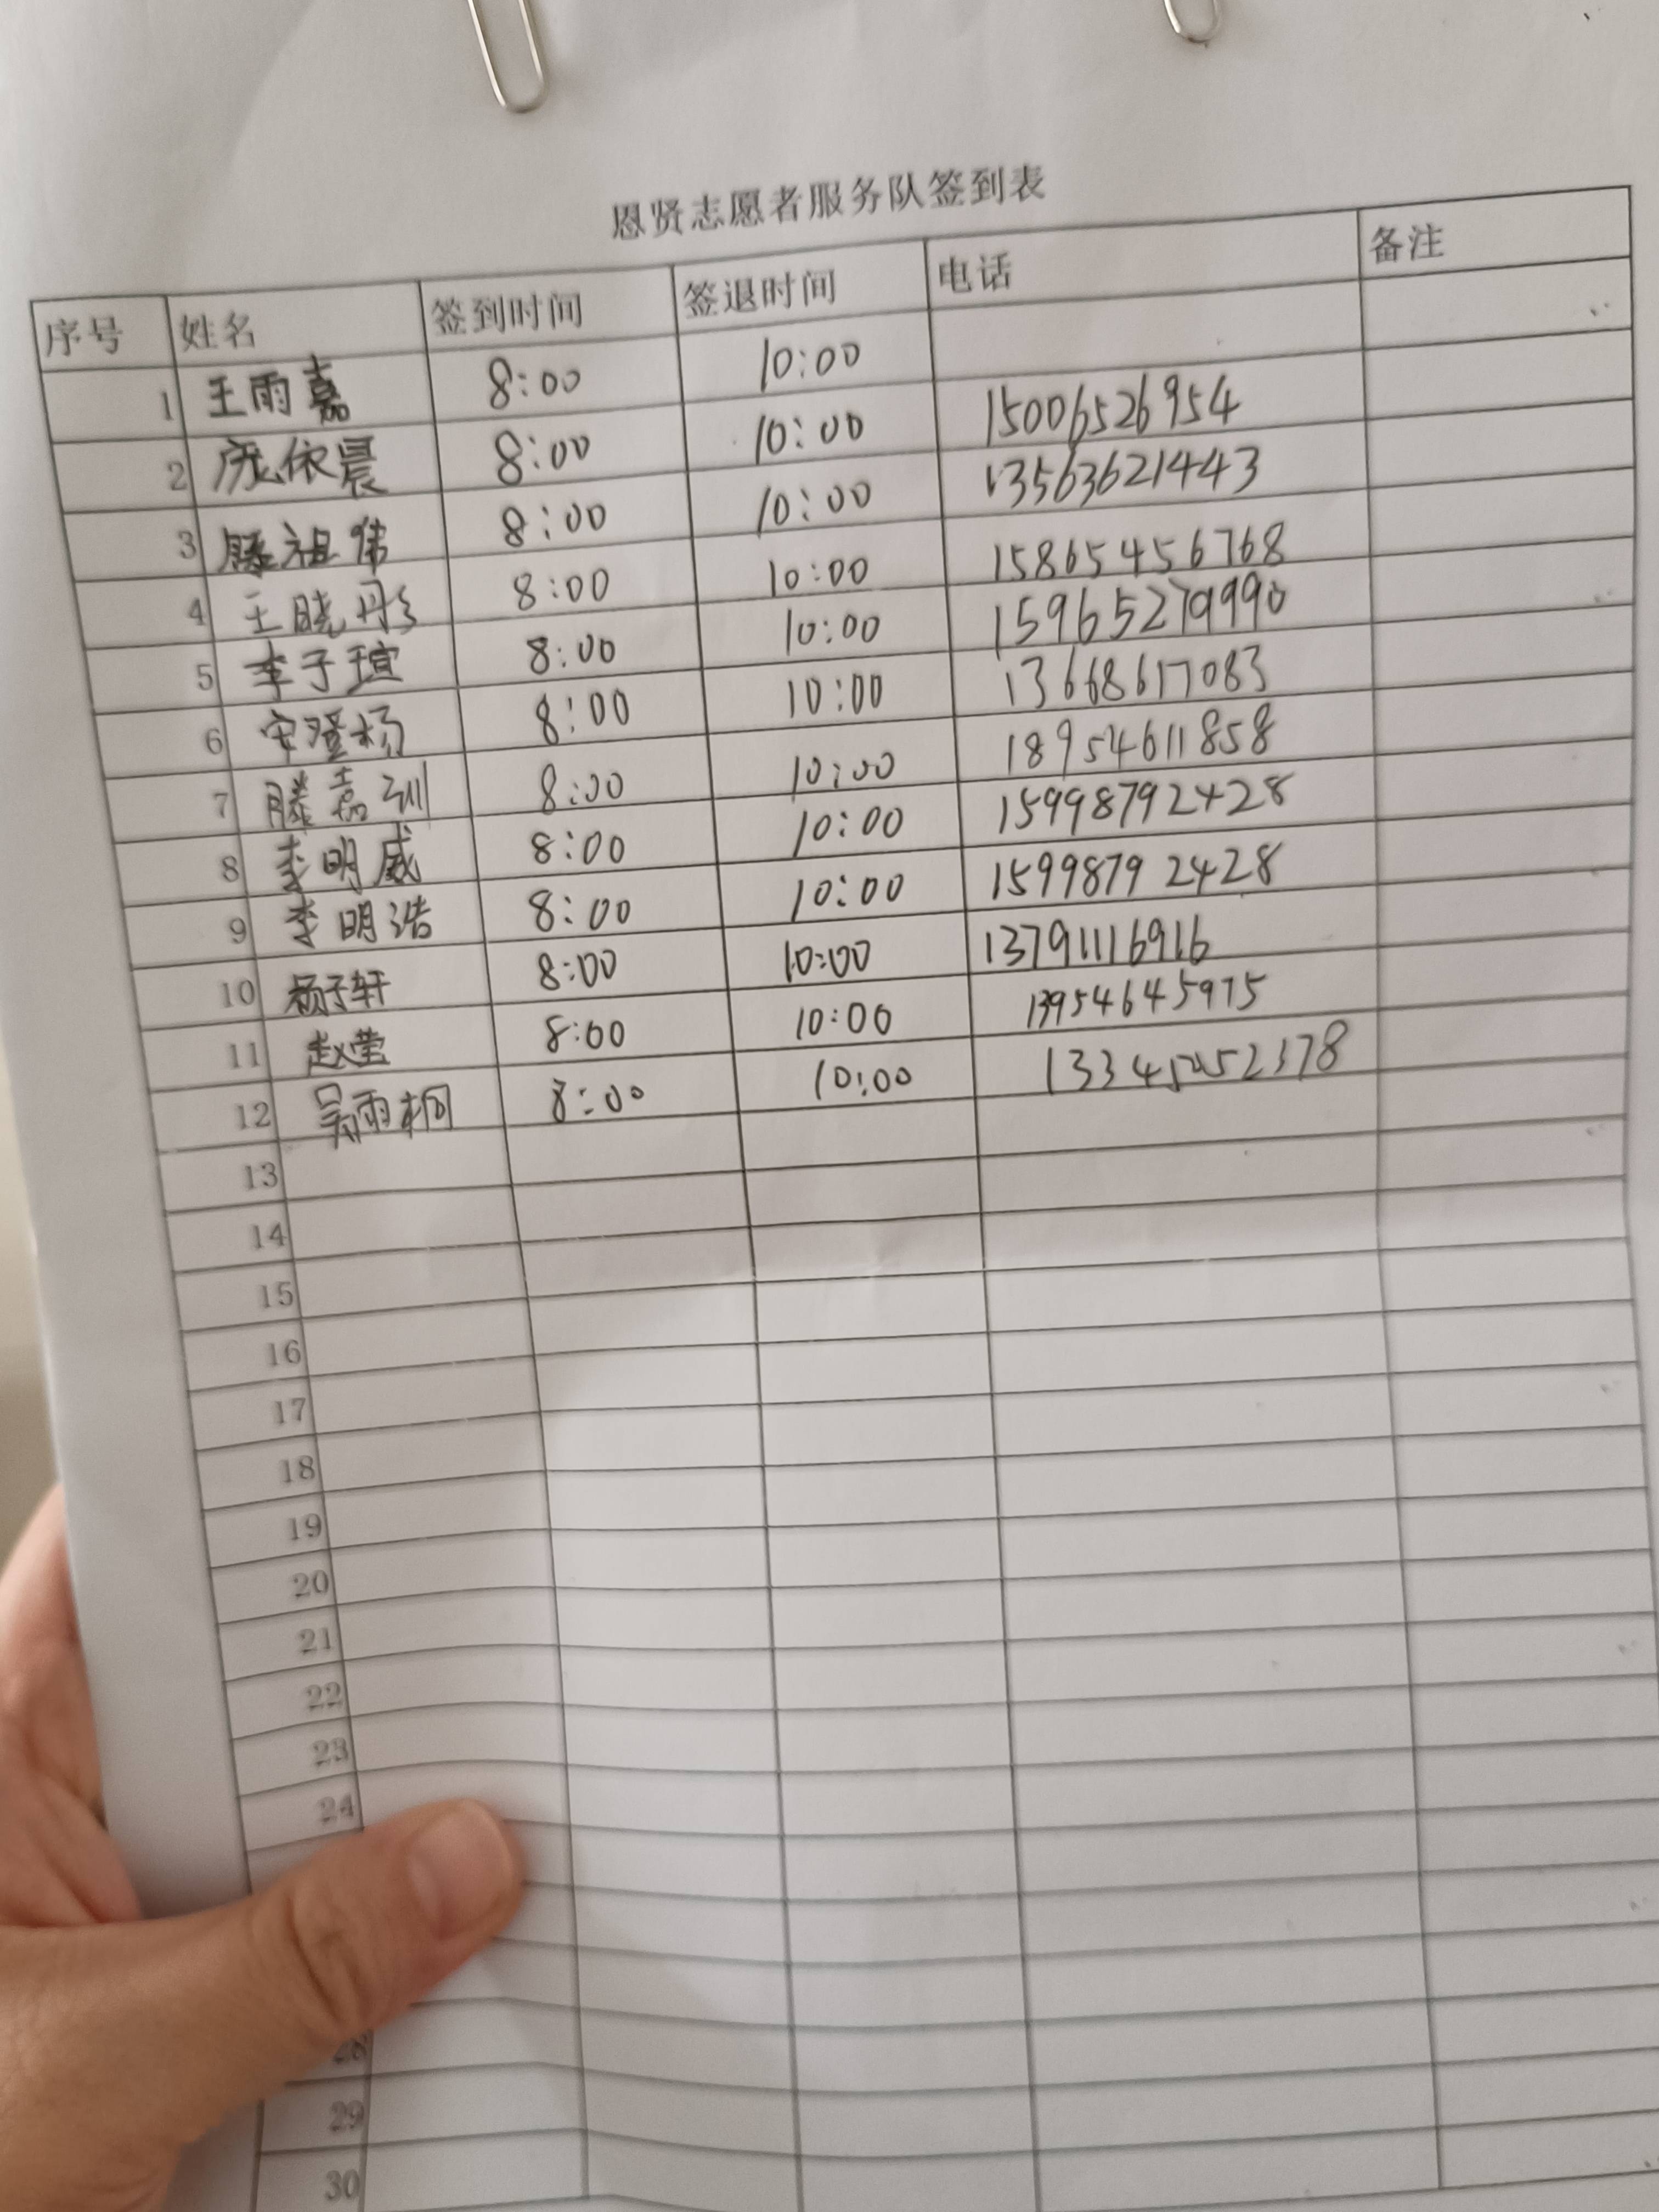 恩贤志愿者服务队签到表
序号 姓名 签到时间 签退时间 电话 备注
1 王雨嘉 8:00 10:00
2 庞依晨 8:00 10:00 15006526954
3 滕祖伟 8:00 10:00 13563621443
4 王晓彤 8:00 10:00 15865456768
5 李子瑄 8:00 10:00 15965279990
6 安澄杨 8:00 10:00 13668617083
7 滕嘉训 8:00 10:00 18954611858
8 李明威 8:00 10:00 15998792428
9 李明浩 8:00 10:00 15998792428
10 杨子轩 8:00 10:00 13791116916
11 赵莹 8:00 10:00 13954645975
12 吴雨桐 8:00 10:00
13
14
15
16
17
18
19
20
21
22
23
24
28
29
30